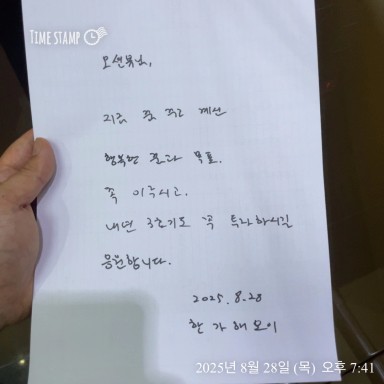 TIME STAMP
오션뷰님,
지금 꿈 꾸고 계신
행복한 결과 목표.
꼭 이루시고.
내년 3호기도 꼭 투자하시길
응원합니다.
2025.8.28
한가해보이
2025년 8월 28일 (목) 오후 7:41